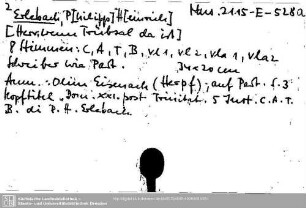 2 Erlebach, P[hilipp] H[einrich] Mus. 2115-E-528a
[Herr, wenn Trübsal da ist]
8 Stimmen: C, A, T, B, vl 1, vl 2, vla 1, vla 2
Schreiber wie Part. 34 x 20 cm
Anm.: Olim Eisenach (Herpf); auf Part. S. 3
Kopftitel „Dom. XXI. post Trinitat. 5 Inst. C. A. T.
B. di P. H. Erlebach